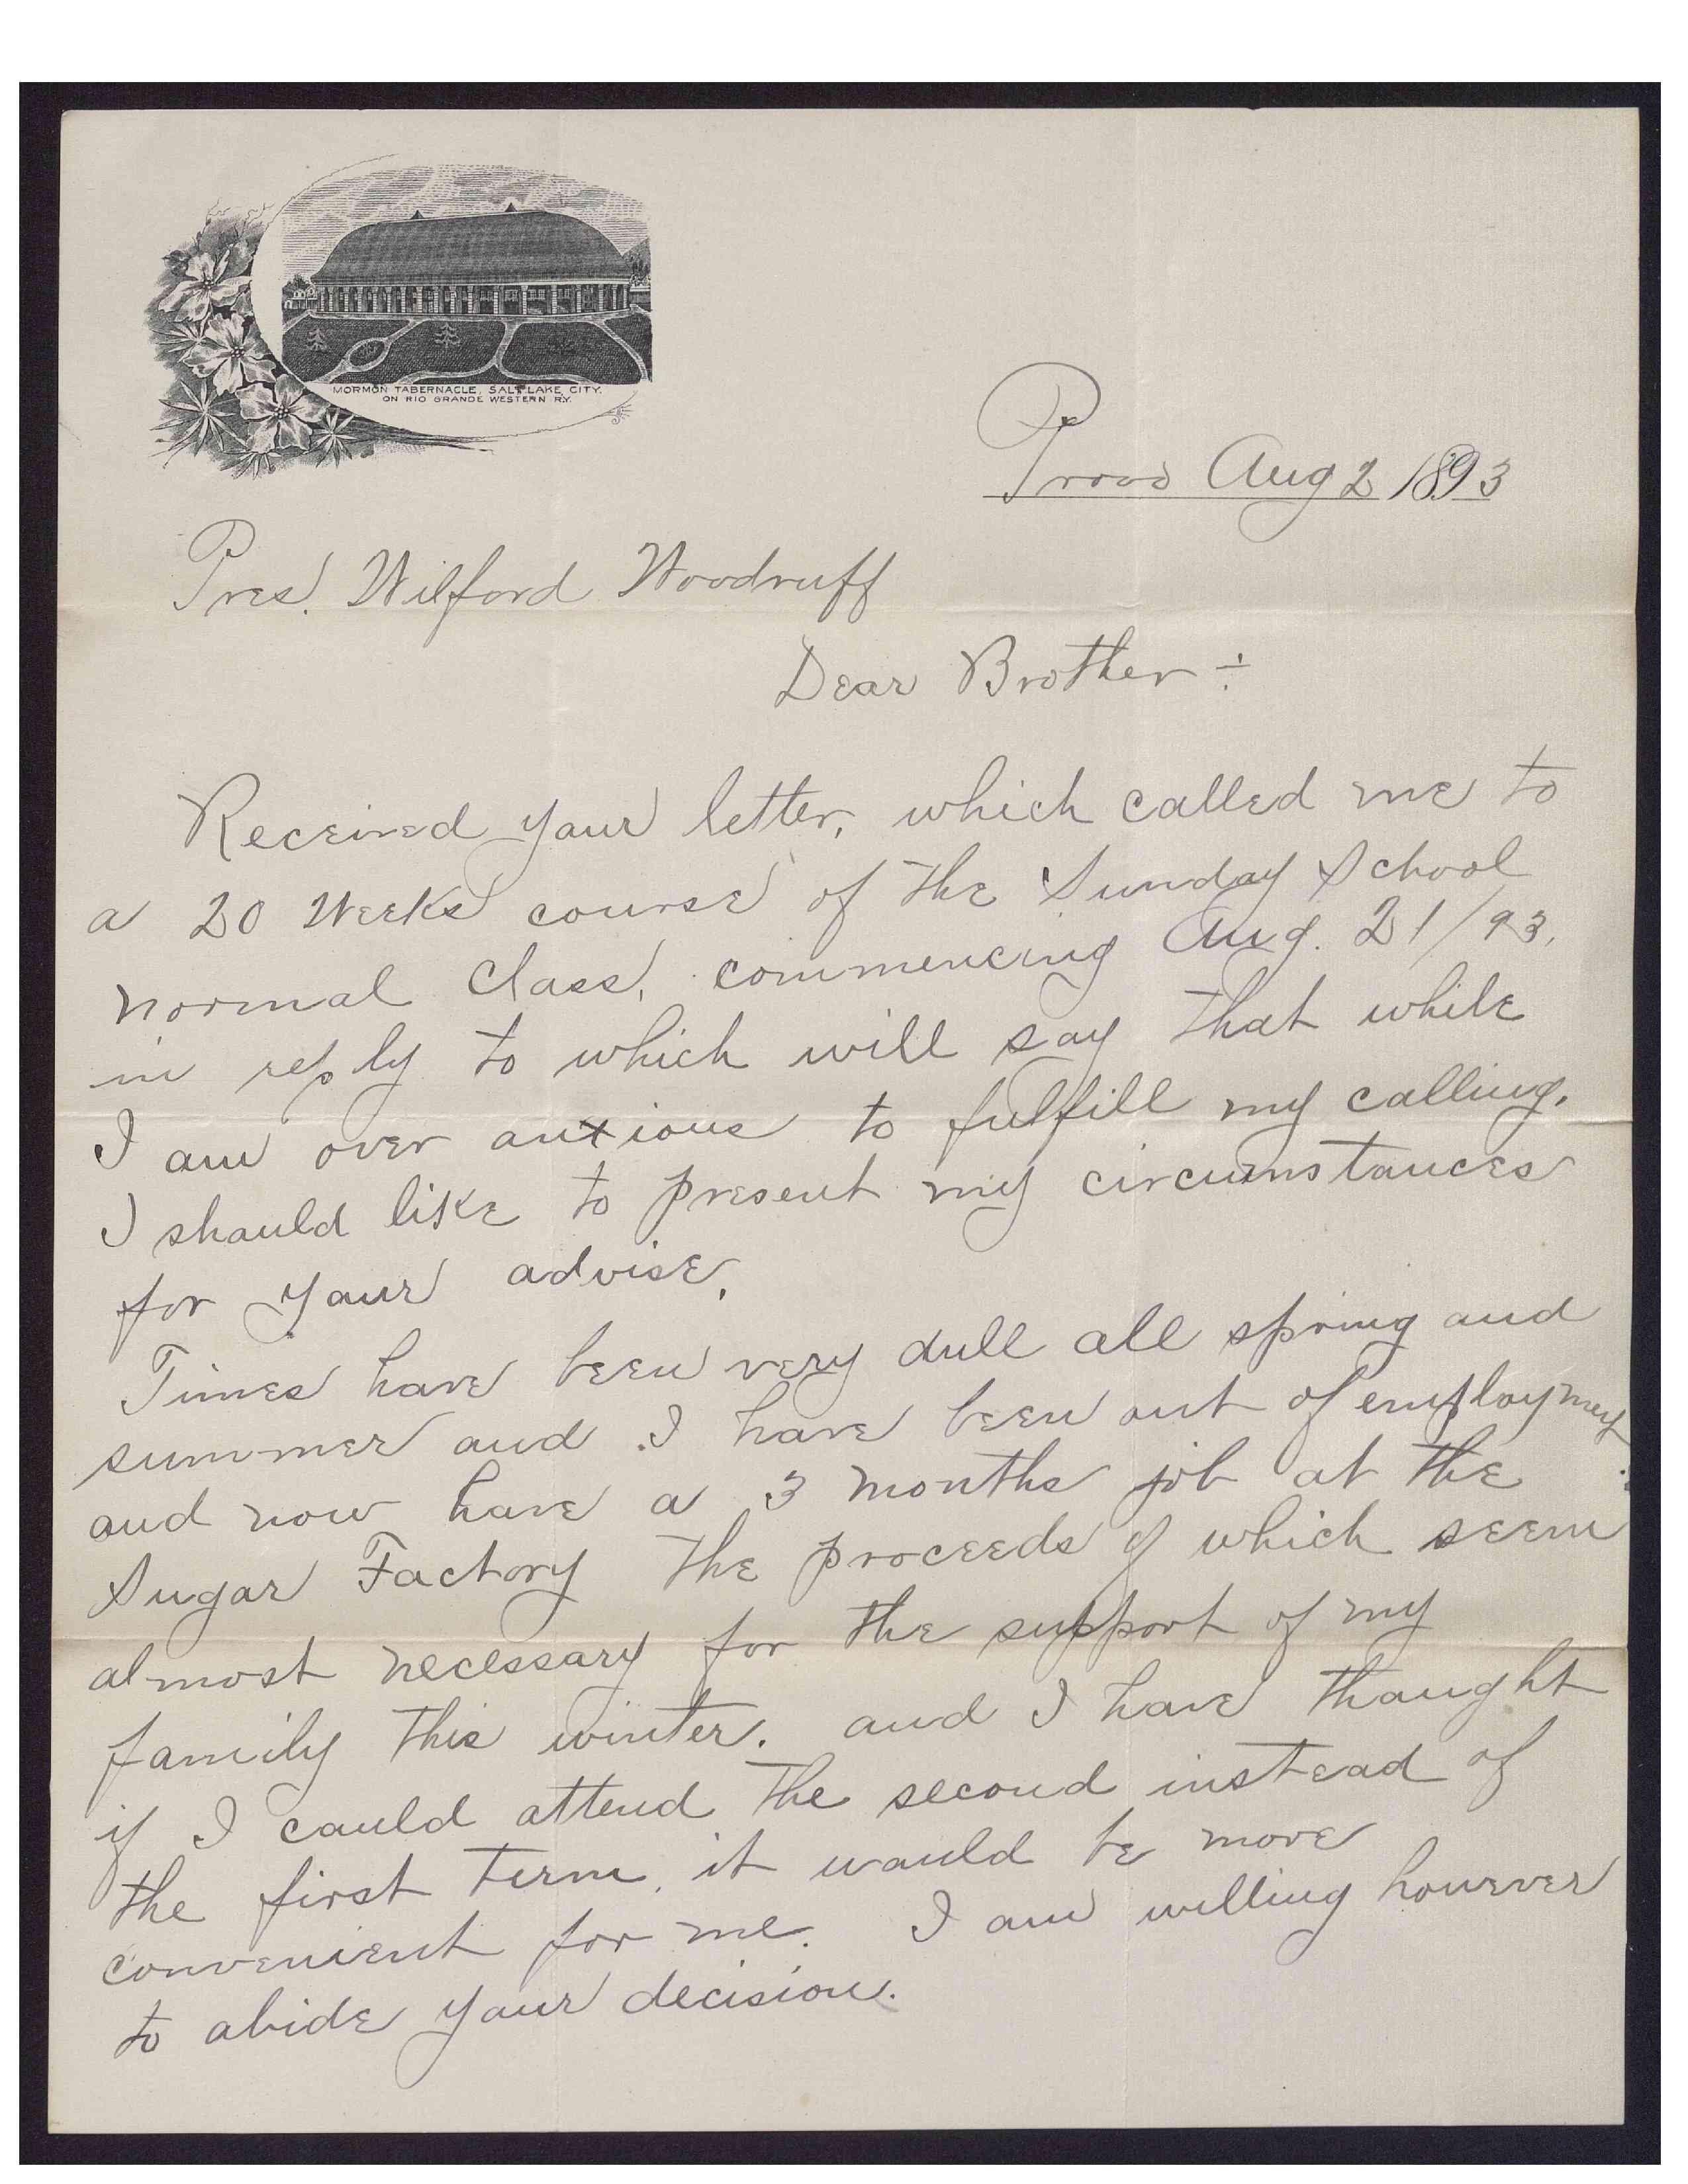 MORMON TABERNACLE, SALT LAKE CITY.
ON RIO GRANDE WESTERN RY.
Provo Aug 2 1893
Pres. Wilford Woodruff
Dear Brother ÷
Received your letter, which called me to
a 20 Weeks course of the Sunday School
normal Class, commencing Aug. 21/93,
in reply to which will say that while
I am over anxious to fulfill my calling.
I should like to present my circumstances
for your advise.
Times have been very dull all spring and
summer and I have been out of employment
and now have a 3 months job at the
Sugar Factory the proceeds of which seem
almost necessary for the support of my
family this winter. and I have thought
if I could attend the second instead of
the first term, it would be more
convenient for me. I am willing however
to abide your decision.